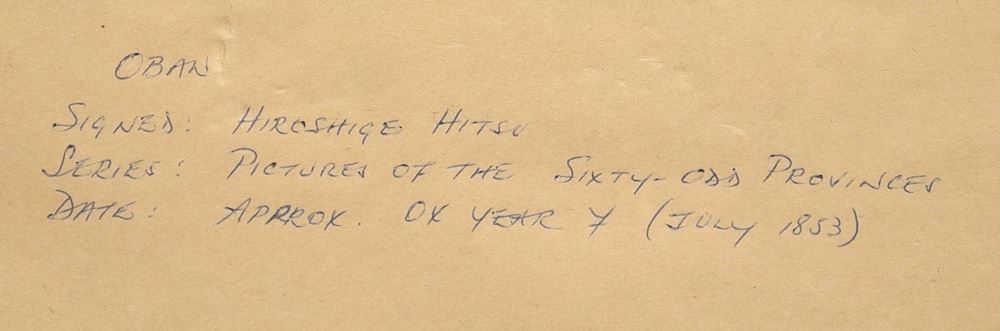 OBAN
SIGNED: HIROSHIGE HITSU
SERIES: PICTURES OF THE SIXTY-ODD PROVINCES
DATE: APRROX. OX YEAR 7 (JULY 1853)